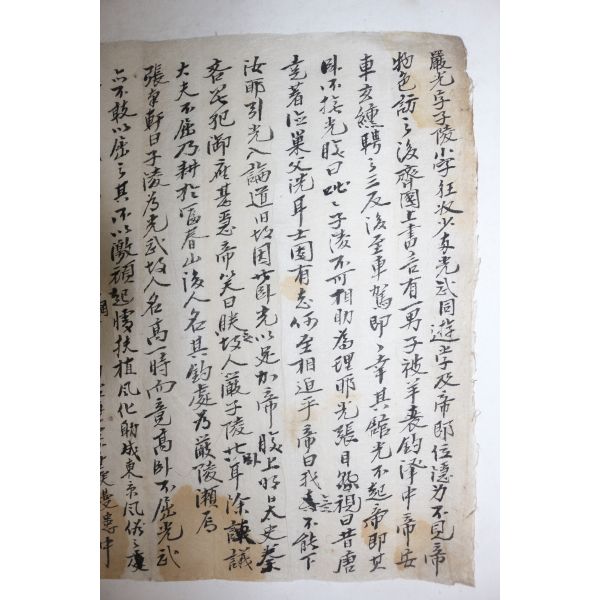 嚴光字子陵小字狂奴少與光武同遊學及帝即位隱而不見帝
物色訪之後齊國上書言有一男子被羊裘釣澤中帝安
車玄纁聘之三反後至車駕即幸其舘光不起帝即其
臥不撫光腹曰咄子陵不可相助爲理耶光張目熟視曰昔唐
堯著德巢父洗耳士固有志何至相迫乎帝曰我不能下
汝耶引光入論道旧故因共臥光以足加帝腹上明日太史奏
客星犯御座甚急帝笑曰朕故人嚴子陵共臥耳除諫議
大夫不屈乃耕於富春山後人名其釣處爲嚴陵瀬焉
張南軒曰子陵爲光武故人名高一時而竟高臥不屈光武
亦不敢以屈之其不以激頑起懦扶植風化助成東京風俗之